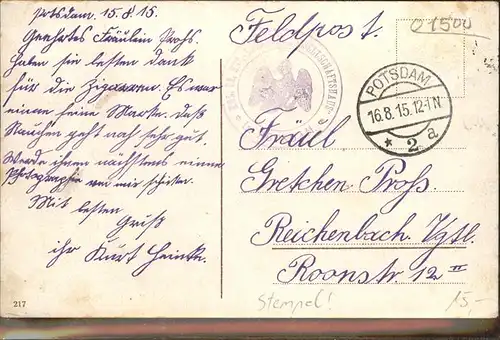 Potsdam. 15.8.15.
Geehrtes Fräulein Prohs.
Haben sie besten Dank
für die Zigarren. Es war
einem feine Marke. Daß
Rauchen geht noch sehr gut.
Werde ihnen nächstens einen
Photographie von mir schicken.
Mit besten
Gruß
ihr Kurt Heinke.
217
Feldpost.
01500
POTSDAM
16.8.15.12-1N
* 2 a
Fräul
Gretchen Proß.
Reichenbach Vgtl.
Roonstr. 12 II
Stempel!
15,-